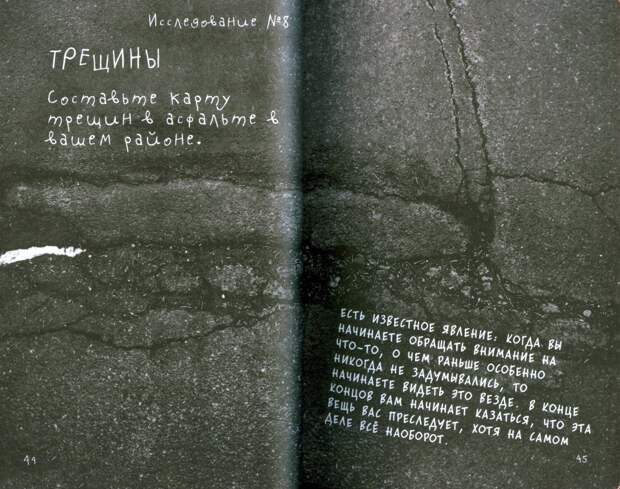 Исследование №8
ТРЕЩИНЫ
Составьте карту
трещин в асфальте в
вашем районе.
44
ЕСТЬ ИЗВЕСТНОЕ ЯВЛЕНИЕ: КОГДА ВЫ
НАЧИНАЕТЕ ОБРАЩАТЬ ВНИМАНИЕ НА
ЧТО-ТО, О ЧЕМ РАНЬШЕ ОСОБЕННО
НИКОГДА НЕ ЗАДУМЫВАЛИСЬ, ТО
НАЧИНАЕТЕ ВИДЕТЬ ЭТО ВЕЗДЕ. В КОНЦЕ
КОНЦОВ ВАМ НАЧИНАЕТ КАЗАТЬСЯ, ЧТО ЭТА
ВЕЩЬ ВАС ПРЕСЛЕДУЕТ, ХОТЯ НА САМОМ
ДЕЛЕ ВСЁ НАОБОРОТ.
45